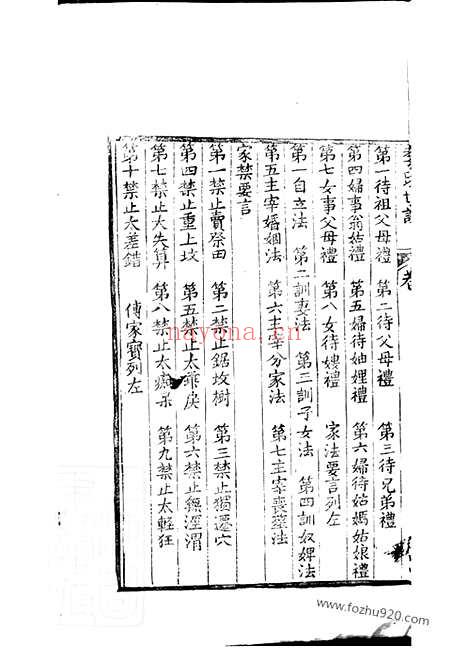 第一待祖父母禮　第二待父母禮　第三待兄弟禮
第四婦事翁姑禮　第五婦待妯娌禮　第六婦待姑媽姑娘禮
第七女事父母禮　第八女待嫂禮　家法要言列左
第一自立法　第二訓妻法　第三訓子女法　第四訓奴婢法
第五主宰婚姻法　第六主宰分家法　第七主宰喪葬法
家禁要言
第一禁止賣祭田　第二禁止鋸坟樹　第三禁止獨遷穴
第四禁止重上坟　第五禁止太乖戾　第六禁止無涇渭
第七禁止大失算　第八禁止太癡呆　第九禁止太輕狂
第十禁止太差錯　傳家寶列左
nayona.cn
www.fozhu920.com